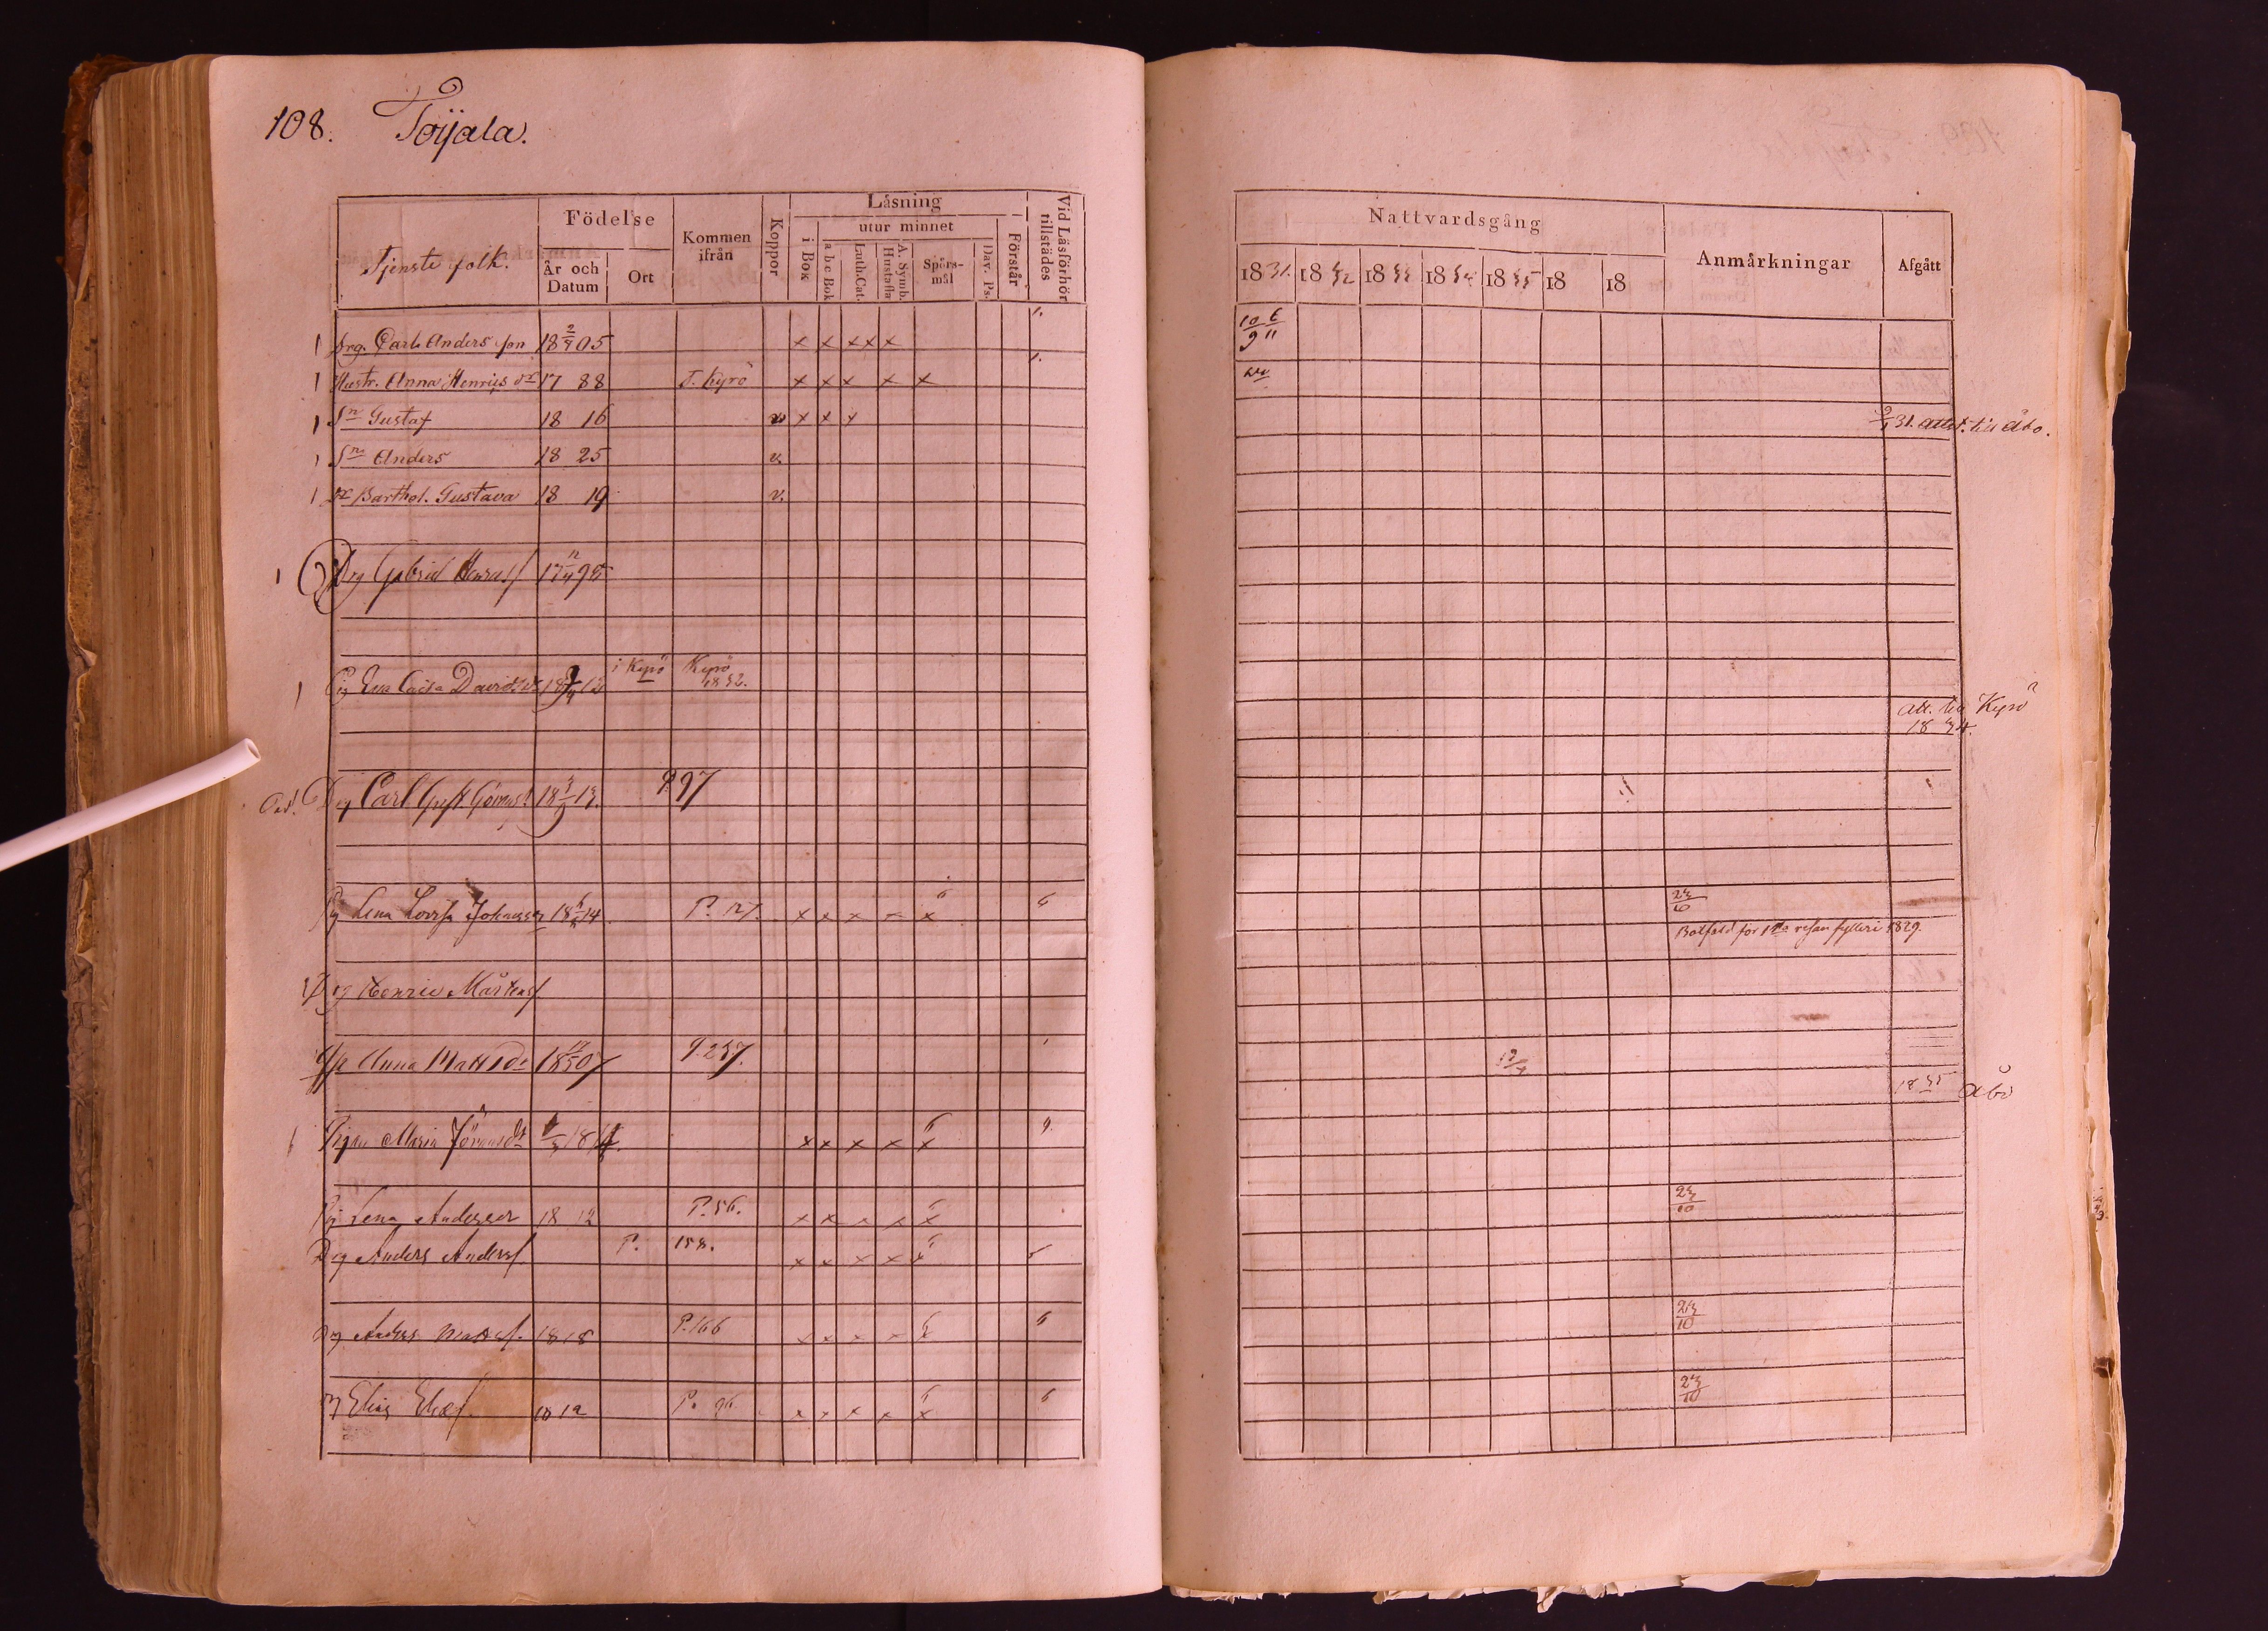 108. Töijala.
Tjenste folk.
Födelse
År och Datum
Ort
Kommen ifrån
Koppor
Låsning
i Bok
utur minnet
a b c Bok
Luth. Cat.
A. Symb. Hustafla
Spörs-mål
Dav. Ps.
Förstår
Vid Läsförhör tillstädes
Nattvardsgång
1831. 1832 1833 1834 1835 18 18
Anmårkningar
Afgått
1 Drg. Carl Anders son 18 2/9 05 x x x x x 1. 10/9 6/11
1 Hustr. Anna Henrics dr 17 88 T. Kyrö x x x x x 1.
1 Sn Gustaf 18 16 v x x x 31. attest. till Åbo.
1 Sn Anders 18 25 v.
1 dr Barthol. Gustava 18 19 v.
1 Drg Gabriel Henrss 17 95
1 Pig Eva Caisa Davidsdr 18 12 i Kyrö Kyrö 1832. att. till Kyrö 1834.
Drg Carl Gust 18 13. P. 97
Pig Lena Lovisa Johansdr 18 14 P. 127. x x x x x 6 6 23/10
Botfäld för 1sta resan fylleri 1829.
1 Drg Henric Mårtenss
Anna Mattsdr 18 07 P. 237. 1835 Åbo
1 Pigan Maria Jöransdr 18 x x x x x 6 9
Pig Lena Andersdr 18 12 P. 56. x x x x x 6 23/10
Drg Anders Anderss. P. 158. x x x x x 6
Drg Anders Matss. 1818 P. 166 x x x x x 6 6 23/10
Elias Eliæs. 1812 P. 96 x x x x x 6 6 23/10